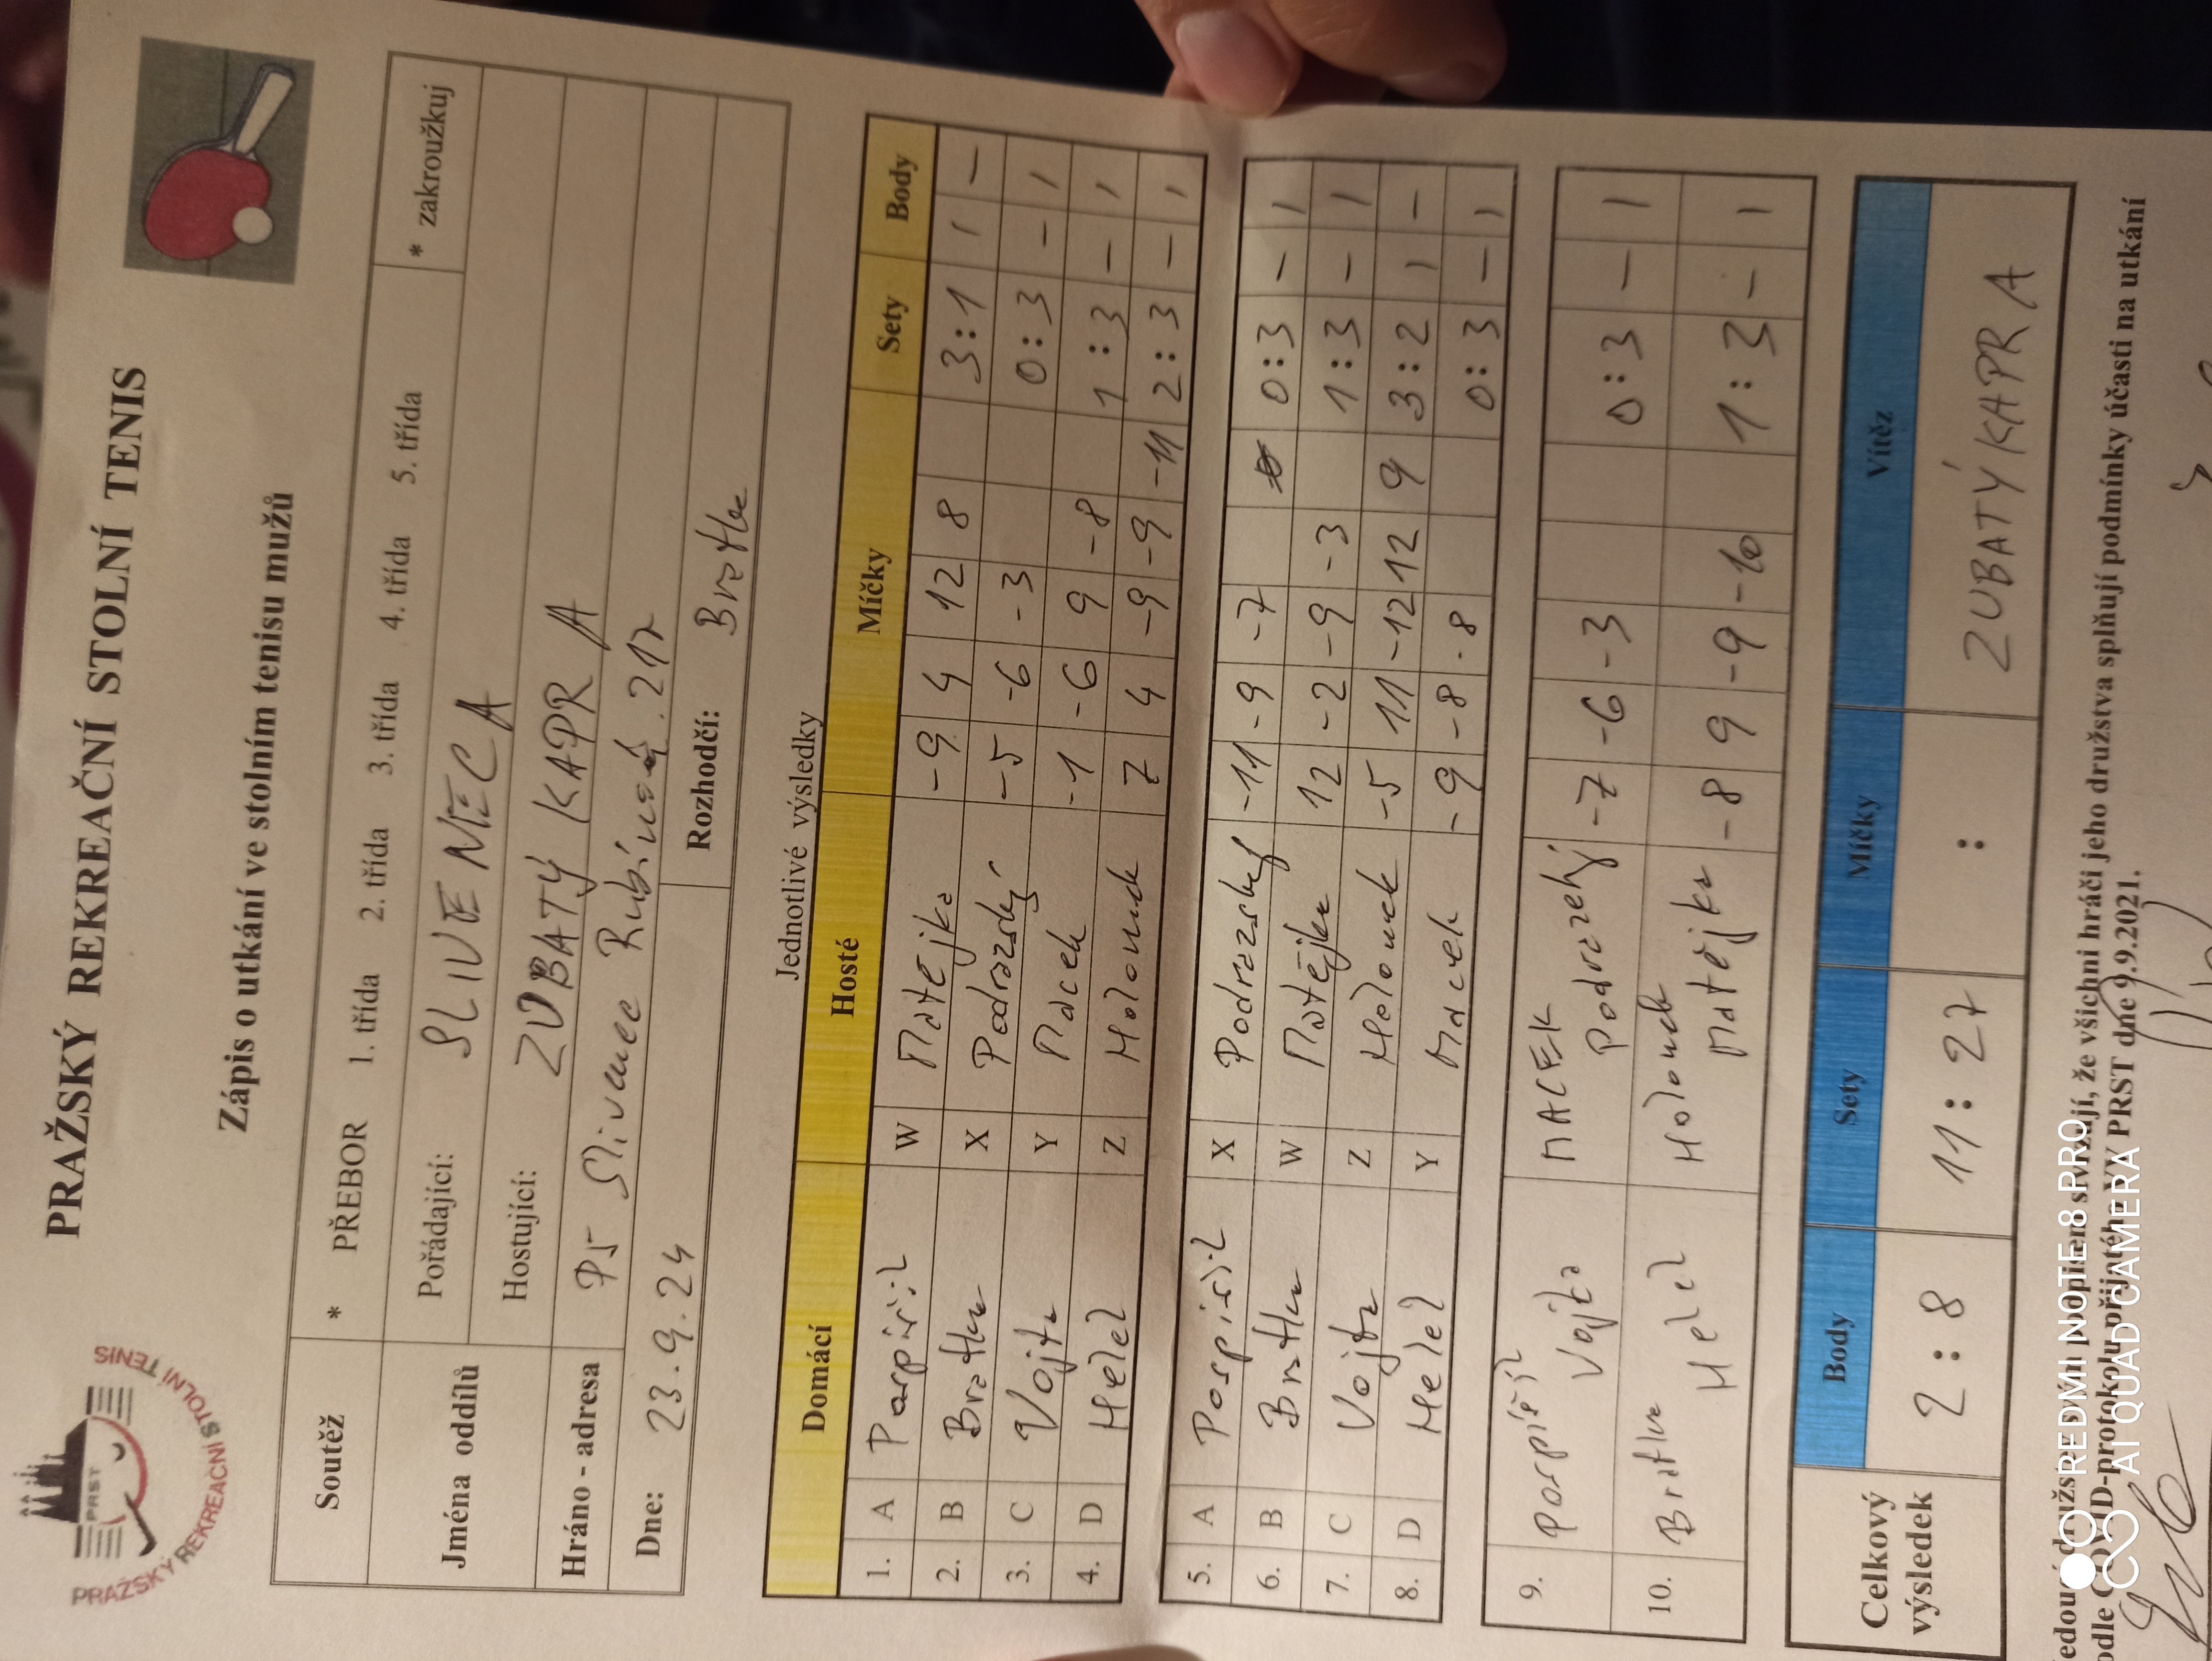 PRAŽSKÝ REKREAČNÍ STOLNÍ TENIS
PRST
PRAŽSKÝ REKREAČNÍ STOLNÍ TENIS
Zápis o utkání ve stolním tenisu mužů
Soutěž * PŘEBOR 1. třída 2. třída 3. třída 4. třída 5. třída * zakroužkuj
Jména oddílů Pořádající: SLIVENEC A
Hostující: ZUBATÝ KAPR A
Hráno - adresa P5 Slivenec
Dne: 23.9.24 Rozhodčí: Bratka
Jednotlivé výsledky
Domácí Hosté Míčky Sety Body
1. A Pospíšil W Matějka -9 4 12 8 3:1 1 -
2. B Bratka X Podrazský -5 -6 -3 0:3 - 1
3. C Vojta Y Macek -1 -6 9 -8 1:3 - 1
4. D Helel Z Holoubek 7 4 -9 -9 -11 2:3 - 1
5. A Pospíšil X Podrazský -11 -9 -7 0:3 - 1
6. B Bratka W Matějka 12 -2 -9 -3 1:3 - 1
7. C Vojta Z Holoubek -5 11 -12 12 9 3:2 1 -
8. D Helel Y Macek -9 -8 -8 0:3 - 1
9. Pospíšil Vojta MACEK Podrazský -7 -6 -3 0:3 - 1
10. Bratka Helel Holoubek Matějka -8 9 -9 -10 1:3 - 1
Celkový výsledek Body Sety Míčky Vítěz
2:8 11:27 : ZUBATÝ KAPR A
družstev svými podpisem stvrzují, že všichni hráči jeho družstva splňují podmínky účasti na utkání
odle COVID-protokolu přijatého VV PRST dne 9.9.2021.
REDMI NOTE 8 PRO
AI QUAD CAMERA